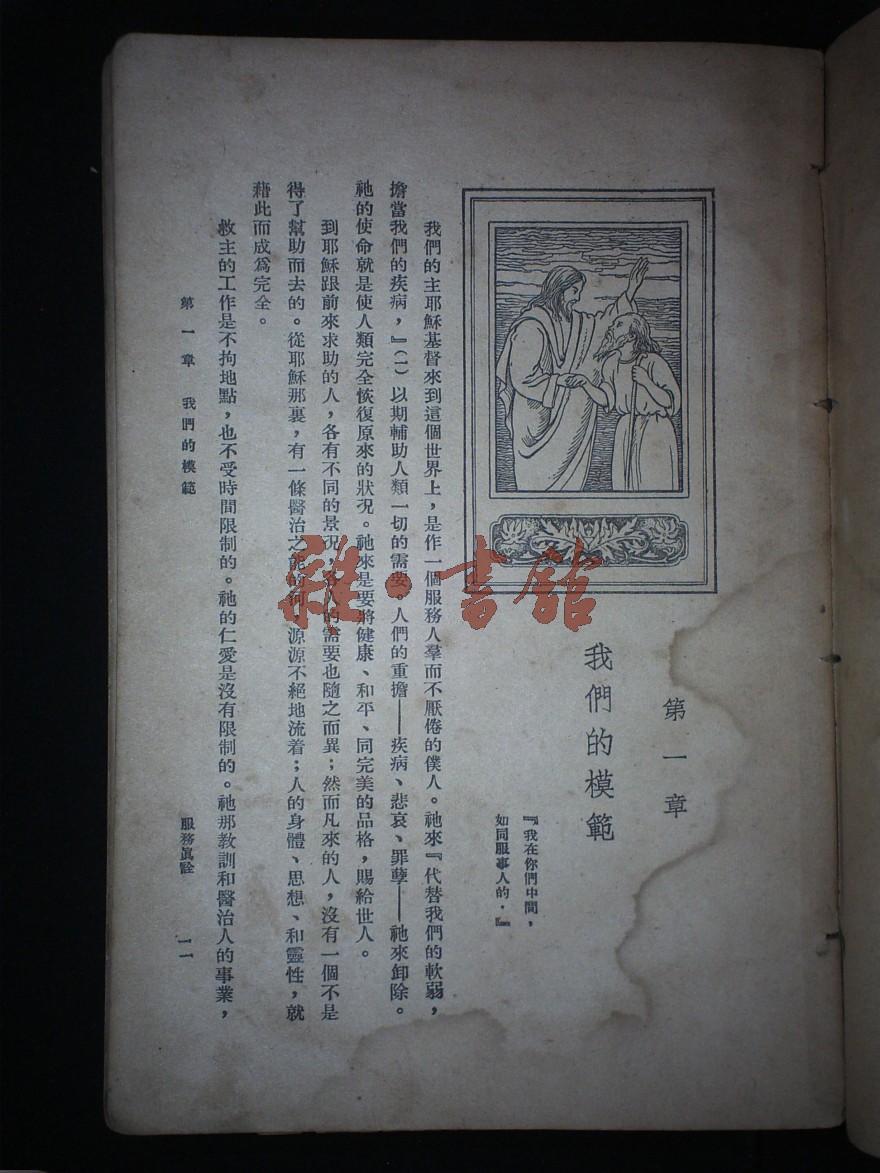 第一章
我們的模範
『我在你們中間，
如同服事人的．』
我們的主耶穌基督來到這個世界上，是作一個服務人羣而不厭倦的僕人。祂來『代替我們的軟弱，
擔當我們的疾病，』(一)以期輔助人類一切的需要。人們的重擔——疾病、悲哀、罪孽——祂來卸除。
祂的使命就是使人類完全恢復原來的狀況。祂來是要將健康、和平、同完美的品格，賜給世人。
到耶穌跟前來求助的人，各有不同的景況，各人的需要也隨之而異；然而凡來的人，沒有一個不是
得了幫助而去的。從耶穌那裏，有一條醫治之能的河，源源不絕地流着；人的身體、思想、和靈性，就
藉此而成爲完全。
救主的工作是不拘地點，也不受時間限制的。祂的仁愛是沒有限制的。祂那教訓和醫治人的事業，
第一章 我們的模範
服務眞詮 一一
雜·書館